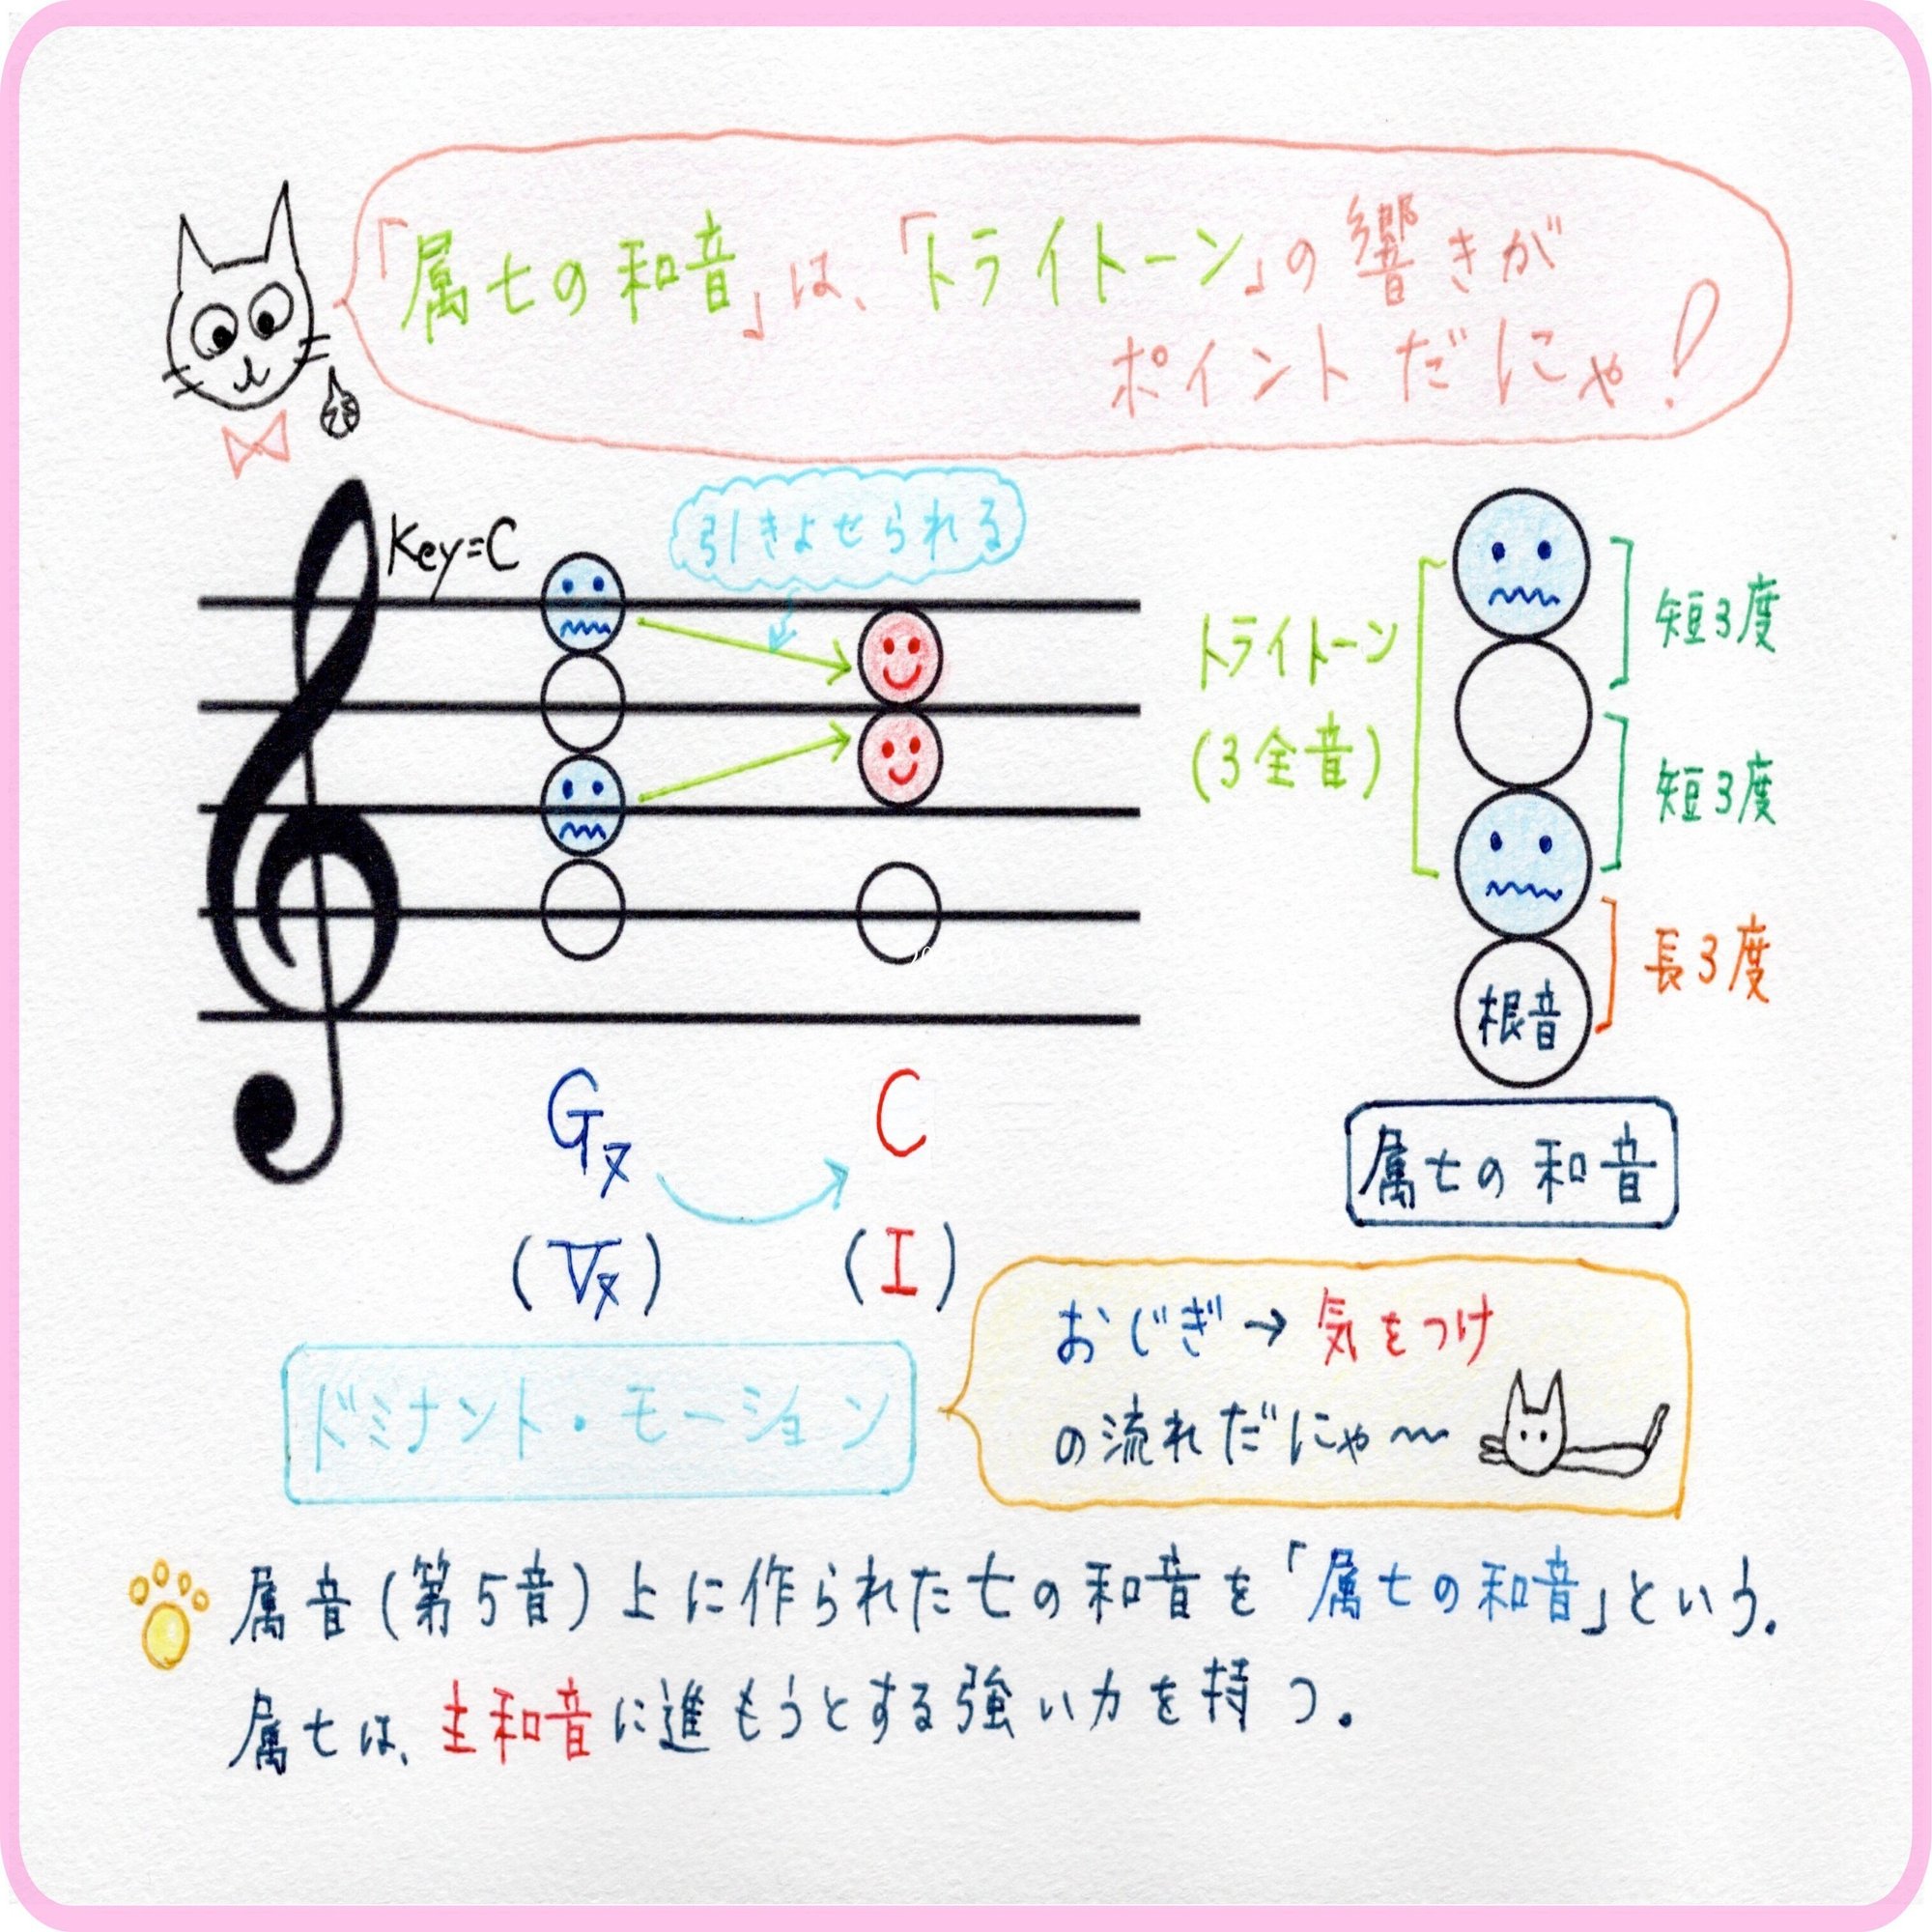 「属七の和音」は、「トライトーン」の響きが
ポイントだにゃ!
Key=C
引きよせられる
トライトーン
(3全音)
短3度
短3度
長3度
根音
属七の和音
G7
C
(V7)
(I)
ドミナント・モーション
おじぎ→気をつけ
の流れだにゃ〜
属音(第5音)上に作られた七の和音を「属七の和音」という.
属七は、主和音に進もうとする強い力を持つ.